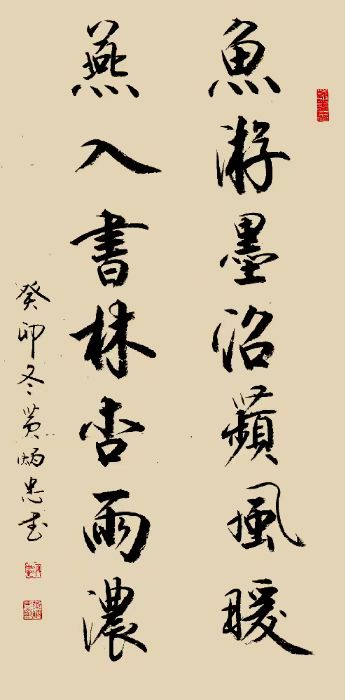 魚游墨沼蘋風暖
燕入書林杏雨濃
癸卯冬黄炳忠书